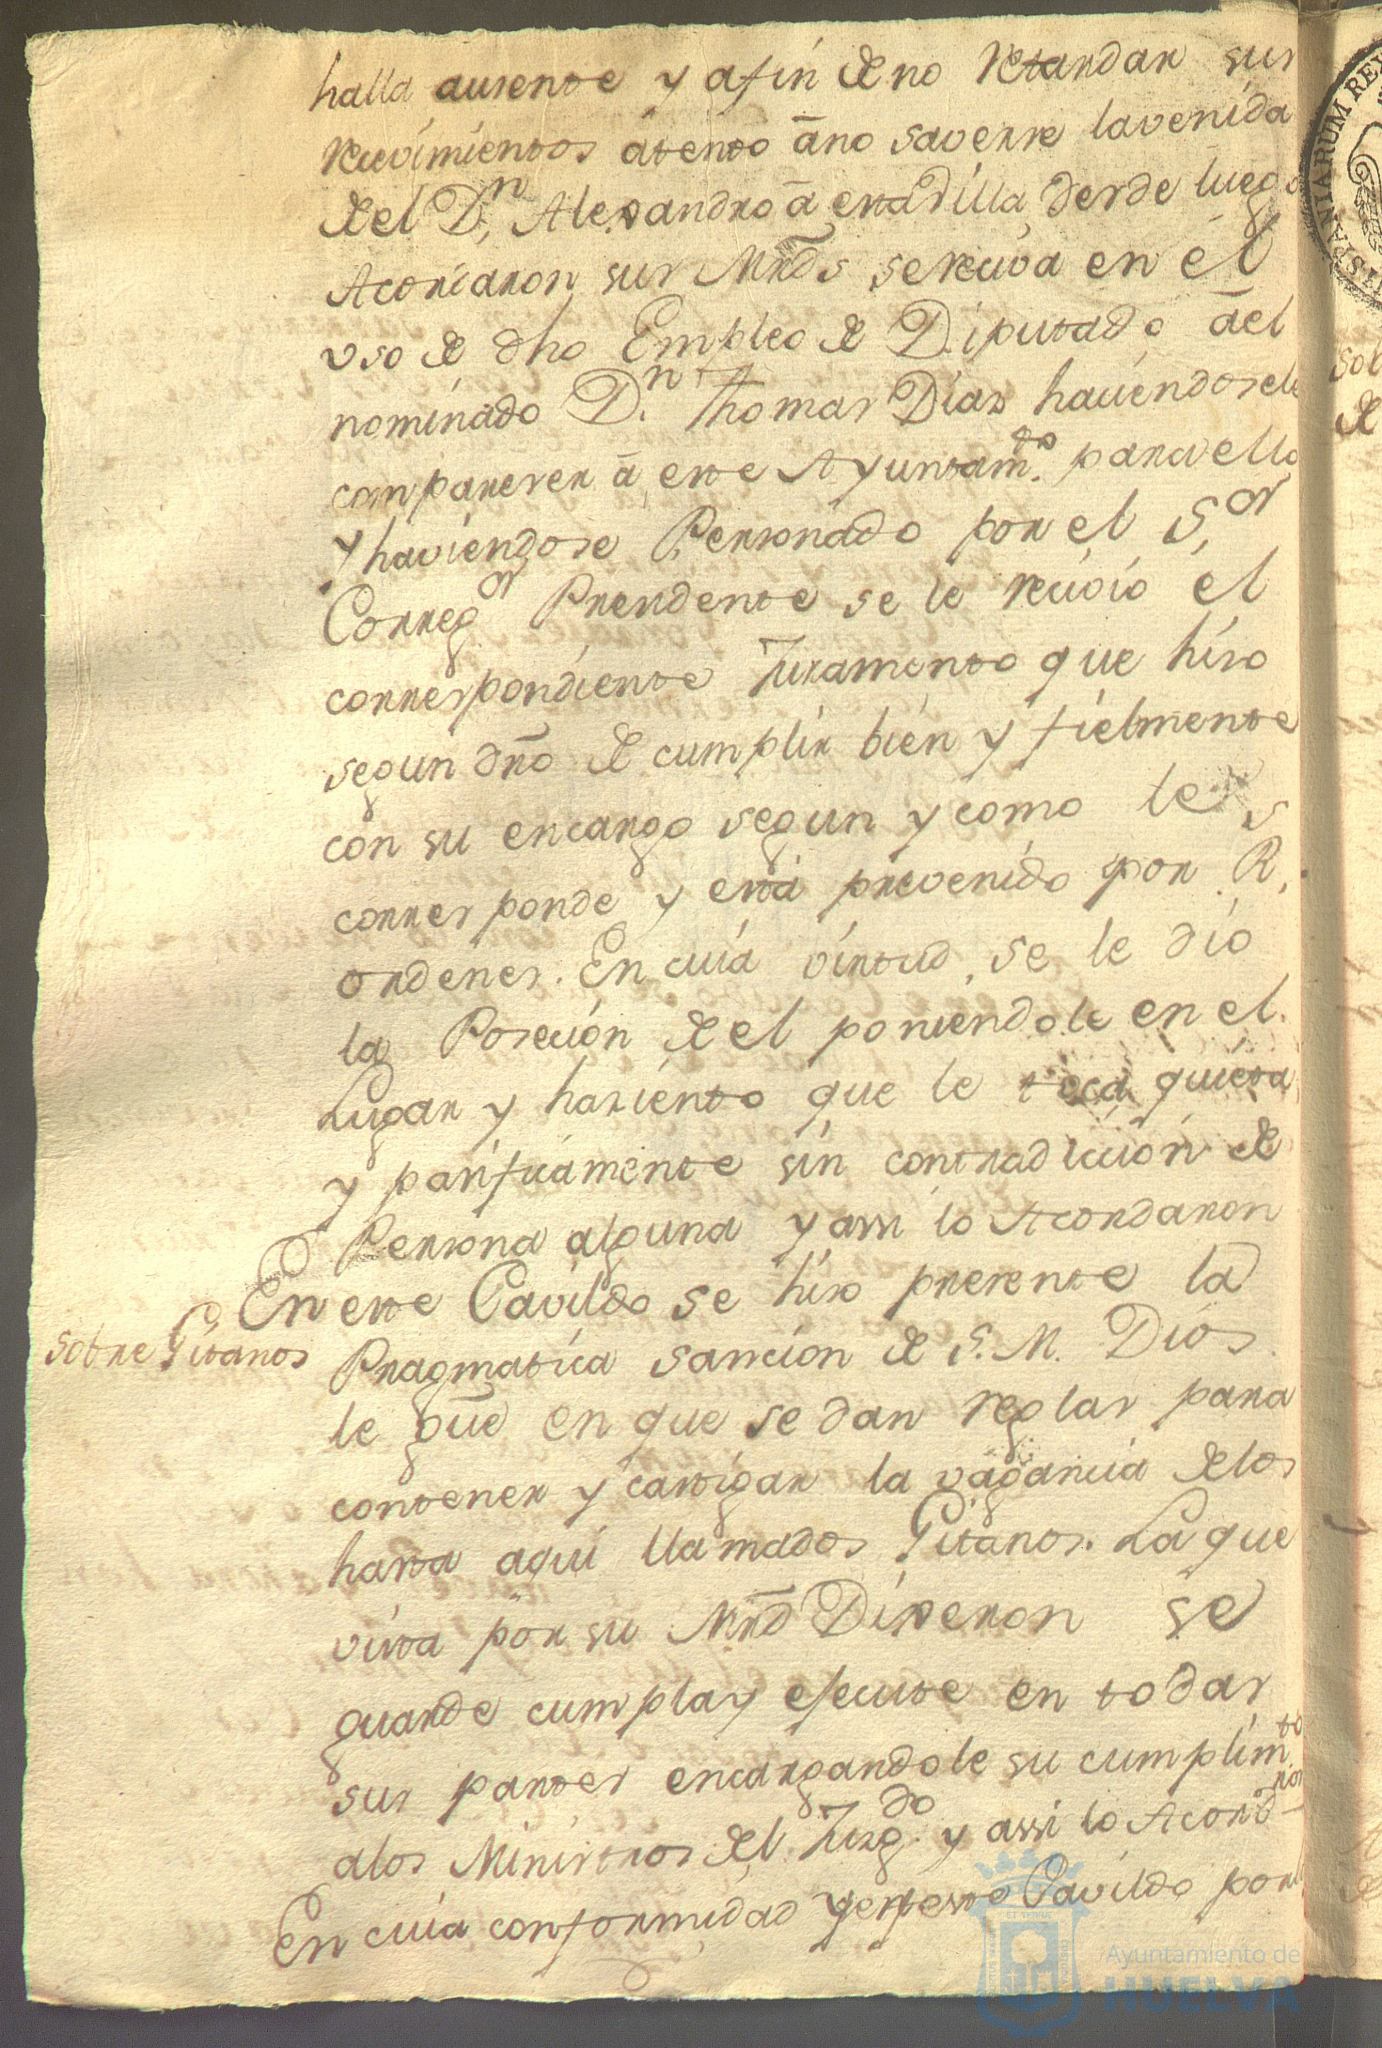 halla ausente y afin de no retardar sus
recivimientos átento āno saverse lavenida
de el Dn. Alexandro ā esta Villa desde luego
Acordaron sus Mrds se reciva en el
uso de dho Empleo de Diputado āel
nominado Dn. Thomas Dias haciendosele
comparecer ā este Ayuntamto. para ello
y haviendose Personado por el Sor
Corregor Presidente se le recivió el
correspondiente Juramento que hiso
segun dro de cumplir bien y fielmente
con su encargo segun y como le
corresponde y está prevenido por Rs.
ordenes. En cuia virtud, se le dio
la Poseción de el poniendole en el
Lugar y haciento que le toca quieta
y pasificamente sin contradicción de
Persona alguna y assi lo Acordaron
Sobre Gitanos
En este Cavildo se hiso presente la
Pragmatica sanción de S. M. Dios
le gūe en que se dan reglas para
contener y castigar la vagancia de los
hasta aqui llamados Gitanos. La que
vista por su Mrd Dixeron se
guarde cumpla y ejecute en todas
sus partes encargandole su cumplimto
alos Ministros del Juzgdo. y assi lo Acordaron
En cuia conformidad
Cavildo por
HISPANIARUM REX
sob
de
Ayuntamiento de
HUELVA